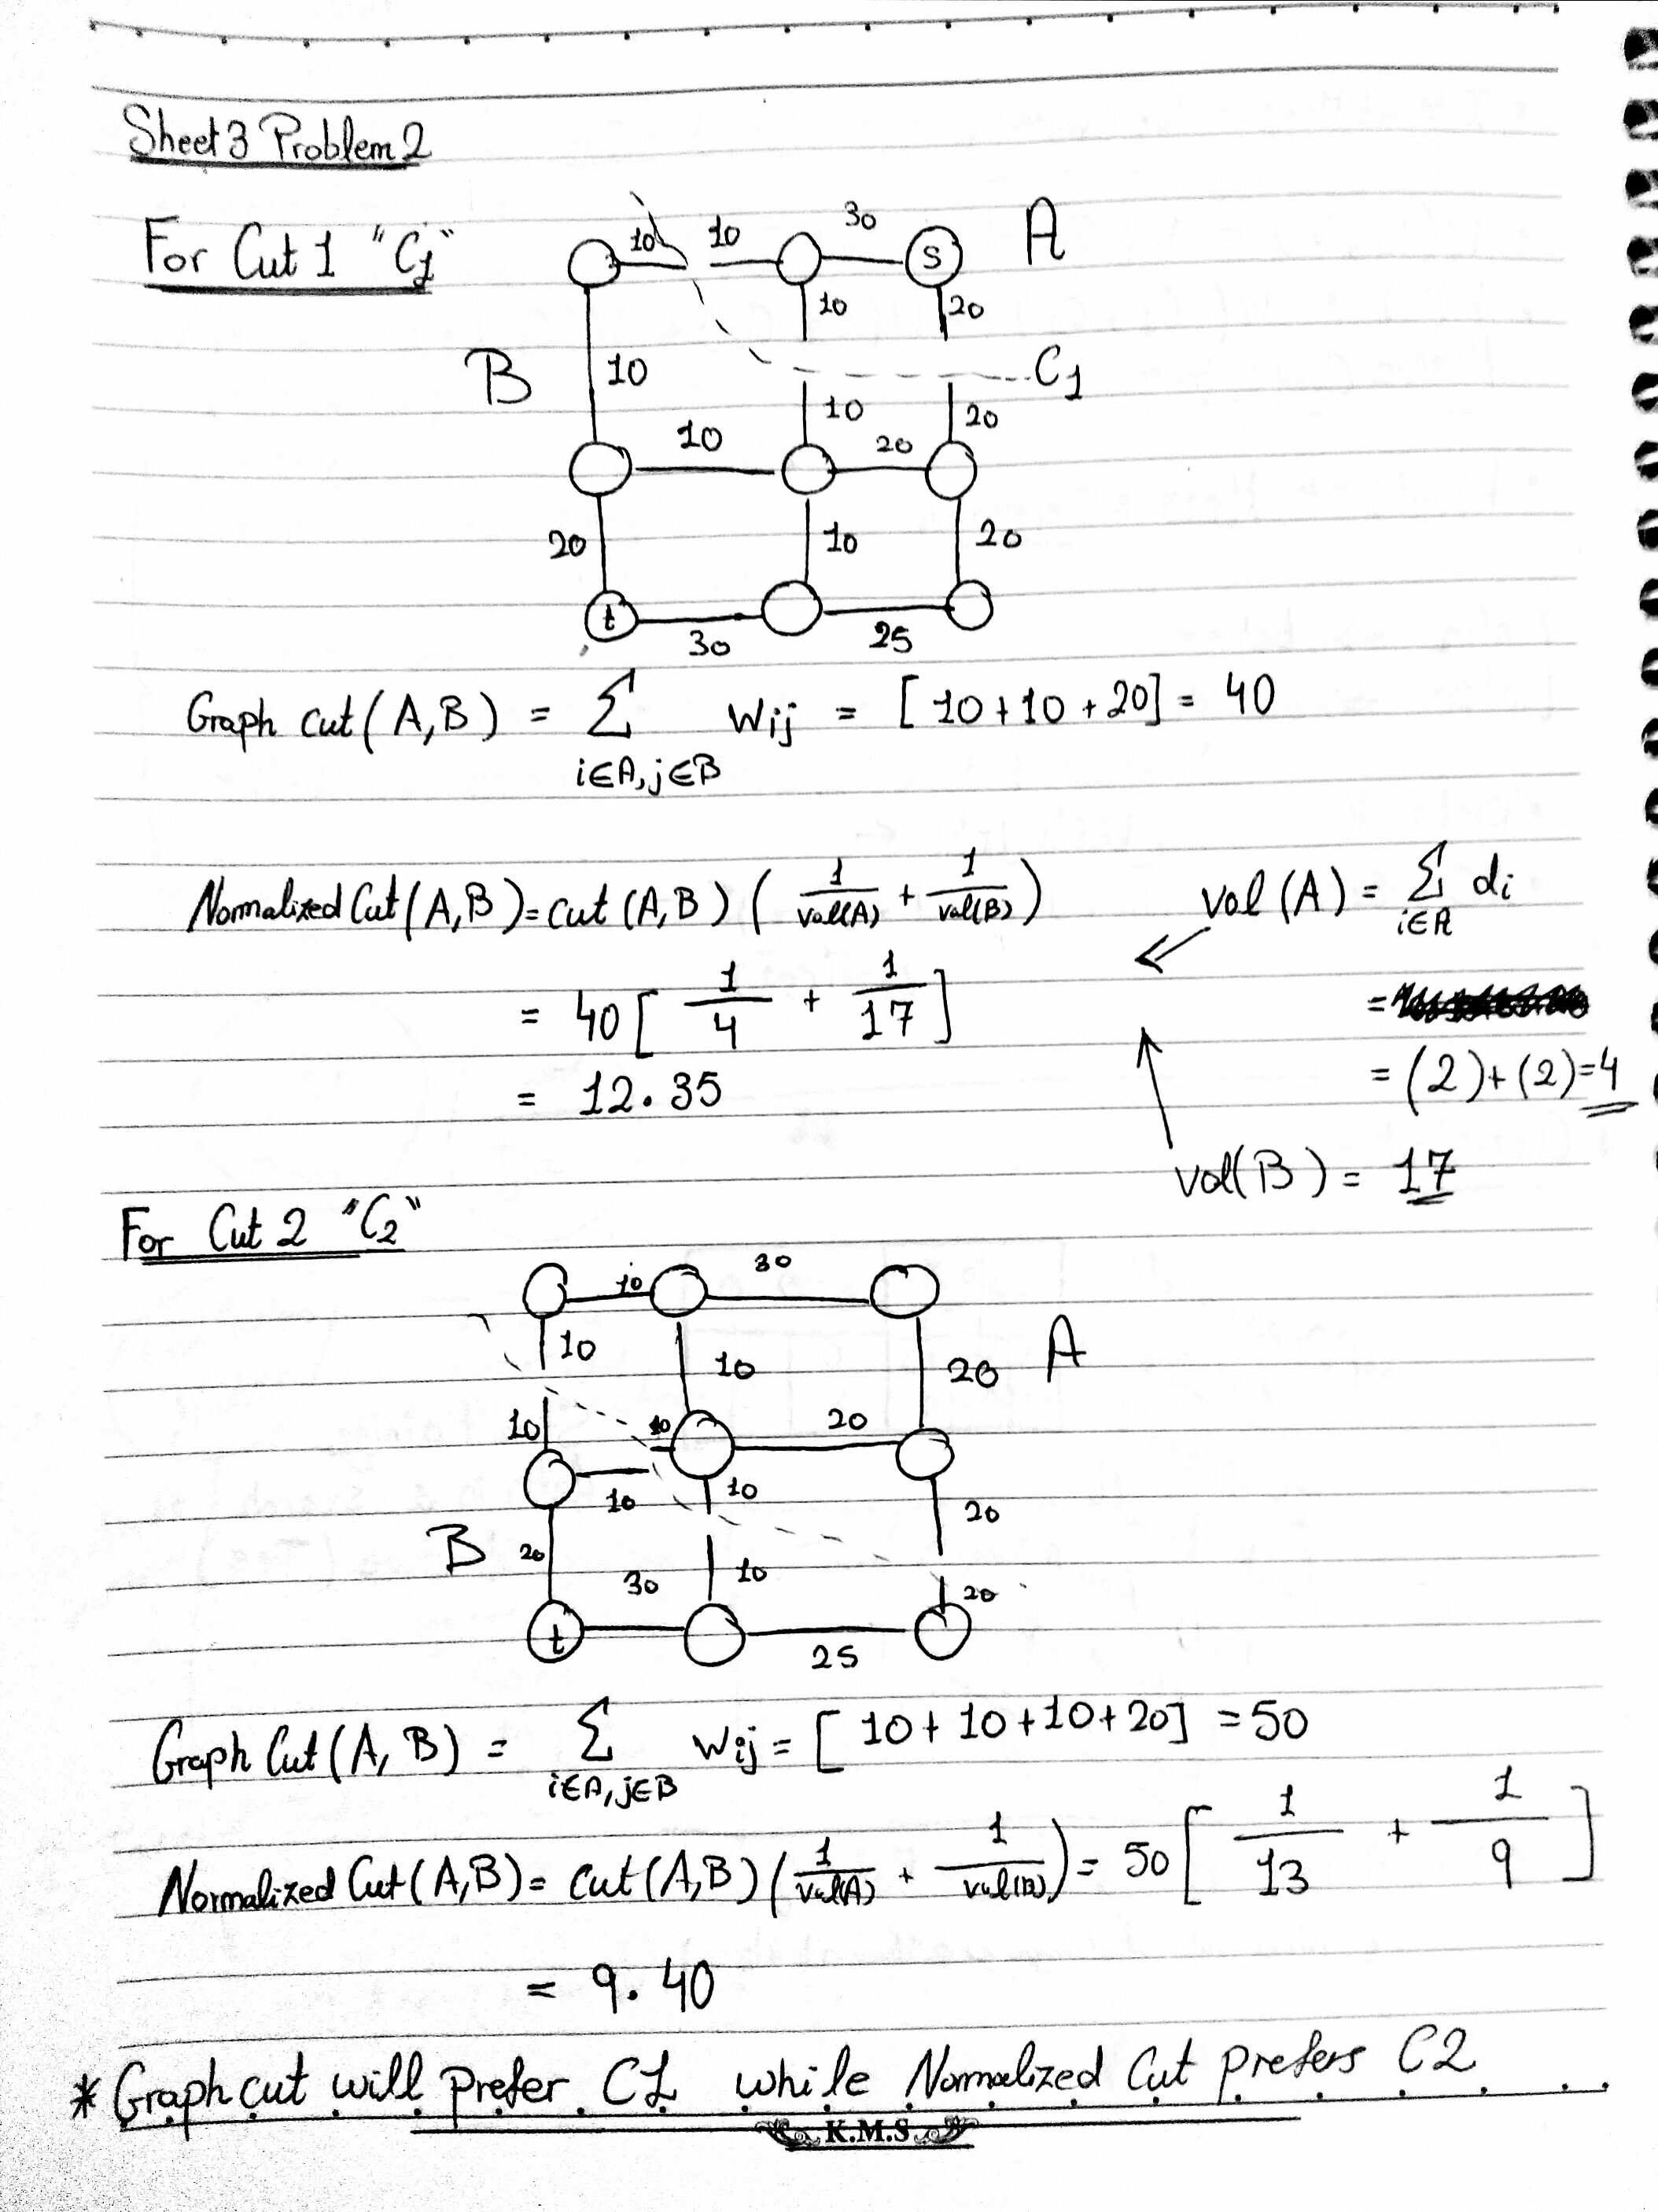 Sheet 3 Problem 2
For Cut 1 "C1"
10 10 30 S A
10 20
B 10 C1
10 20
10 20
20 10 20
t
30 25
Graph cut(A,B) = Σ wij = [10+10+20] = 40
i∈A,j∈B
Normalized Cut(A,B) = cut(A,B) ( 1/vol(A) + 1/vol(B) ) vol(A) = Σ di
i∈A
= 40 [ 1/4 + 1/17 ] =
= 12.35 = (2)+(2)=4
vol(B) = 17
For Cut 2 "C2"
10 30
10 10 20 A
10 10 20
10 10 20
B 20 30 10 20
t 25
Graph Cut(A,B) = Σ wij = [10+10+10+20] = 50
i∈A,j∈B
Normalized Cut(A,B) = cut(A,B) ( 1/vol(A) + 1/vol(B) ) = 50 [ 1/13 + 1/9 ]
= 9.40
* Graph cut will prefer C1 while Normalized Cut prefers C2
K.M.S.